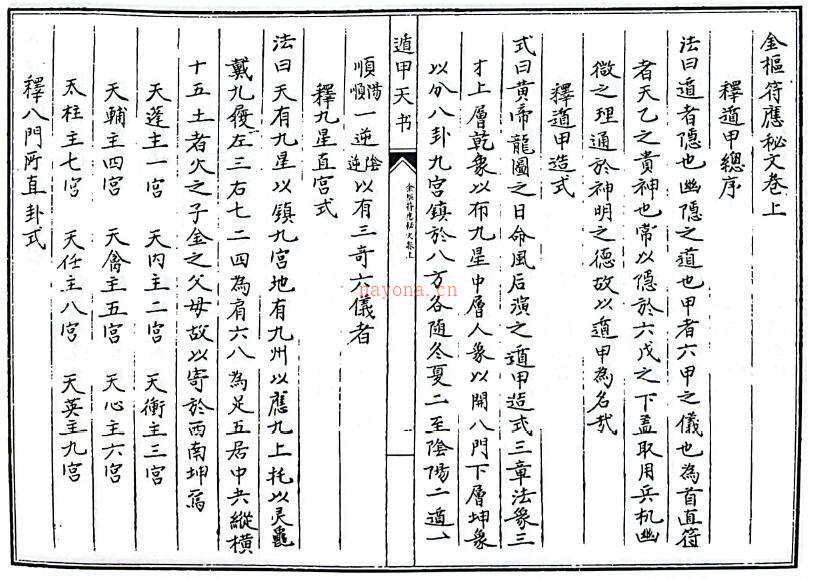 金樞符應秘文卷上
釋遁甲總序
法曰遁者隱也幽隱之道也甲者六甲之儀也為首直符
者天乙之貴神也常以隱於六戊之下盖取用兵机幽
微之理通於神明之德故以遁甲為名哉
釋遁甲造式
式曰黄帝龍圖之日命風后演之遁甲造式三章法象三
才上層乾象以布九星中層人象以開八門下層坤象
以分八卦九宫鎮於八方各随冬夏二至陰陽二遁一
遁甲天书
金樞符應秘文卷上
順陽順一逆陰逆以有三奇六儀者
釋九星直宫式
法曰天有九星以鎮九宫地有九州以應九上托以灵龜
戴九履左三右七二四為肩六八為足五居中共縱橫
十五土者火之子金之父母故以寄於西南坤焉
天蓬主一宫 天内主二宫 天衝主三宫
天輔主四宫 天禽主五宫 天心主六宫
天柱主七宫 天任主八宫 天英主九宫
釋八門所直卦式
nayona.cn